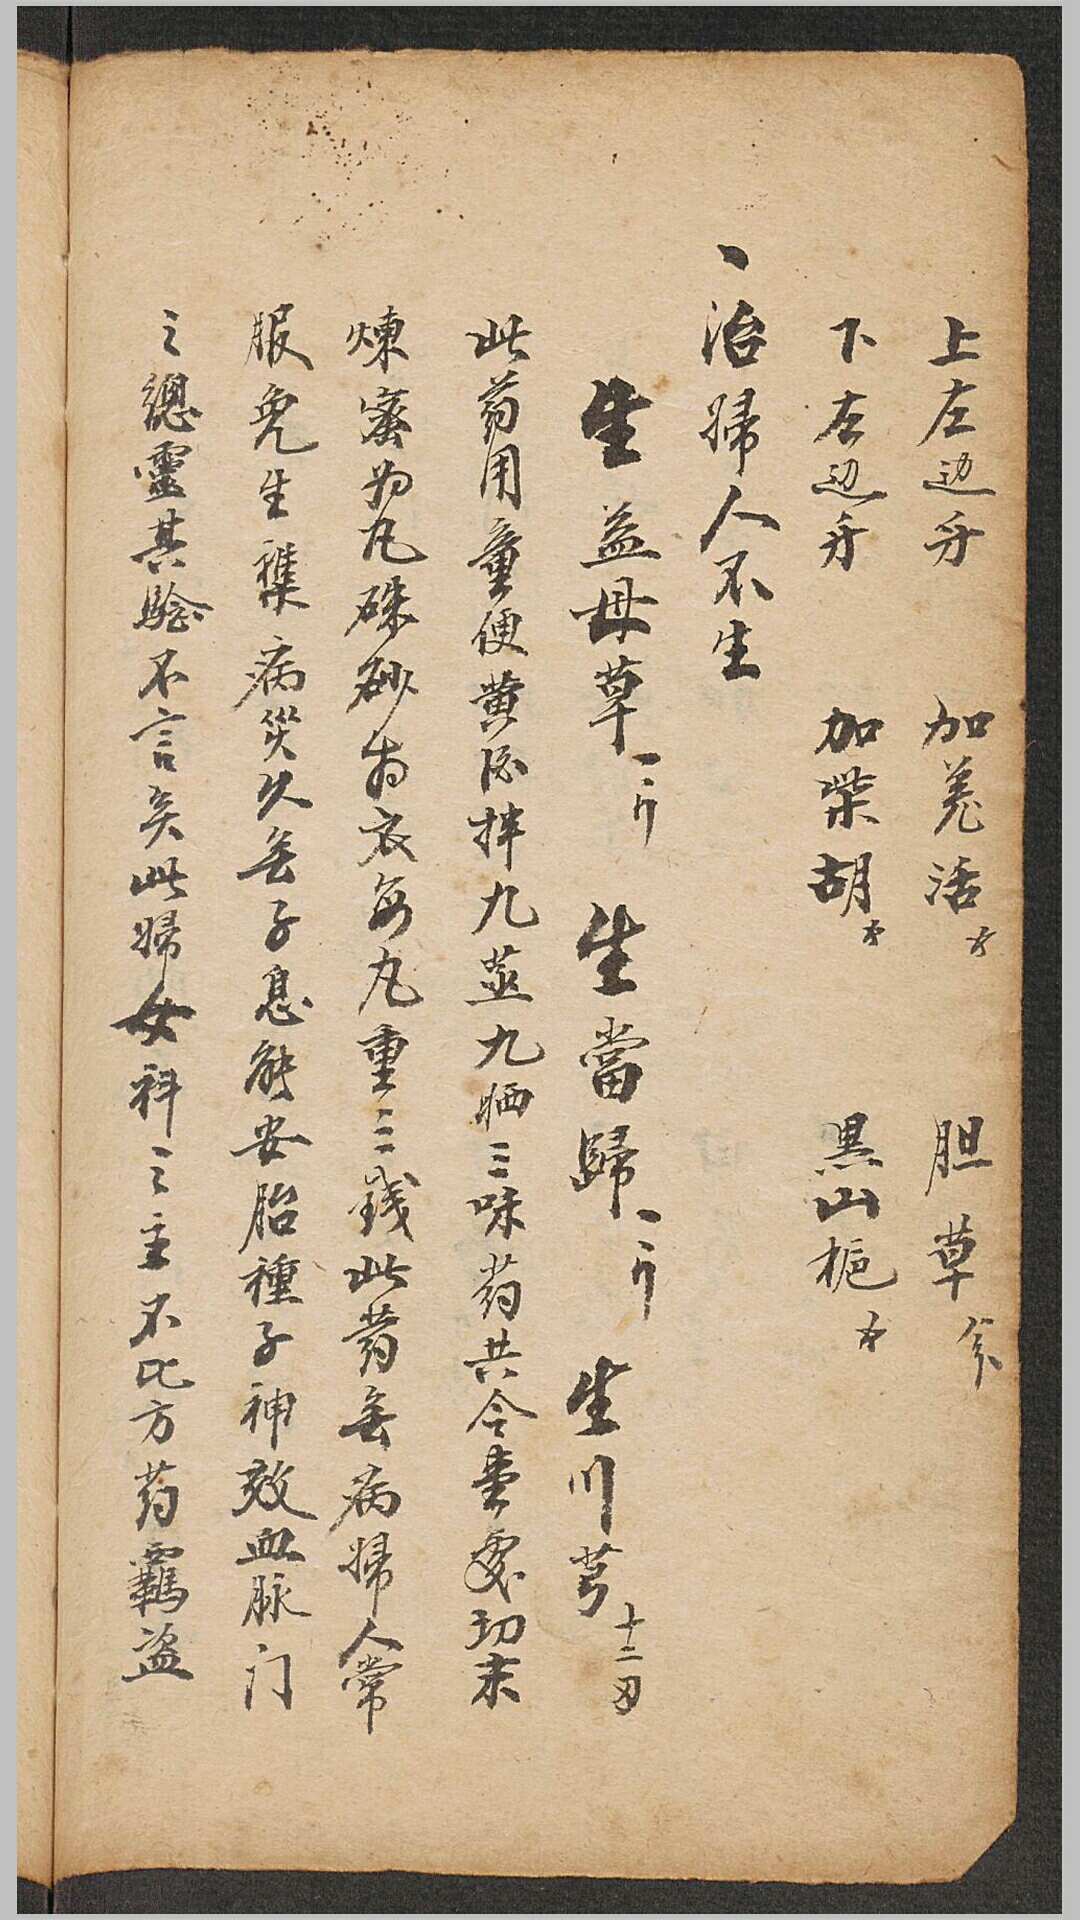 上左边牙 加羌活 胆草
下左边牙 加柴胡 黑山梔
、治婦人不生
生益母草一斤 生當歸一斤 生川芎十二刄
此药用童便黄酒拌九蒸九晒三味药共合壹處切末
煉蜜为丸硃砂为衣每丸重三錢此药无病婦人常
服免生襍病災久无子息能安胎種子神效血脉门
之總靈其驗不言矣此婦女科之主不比方药